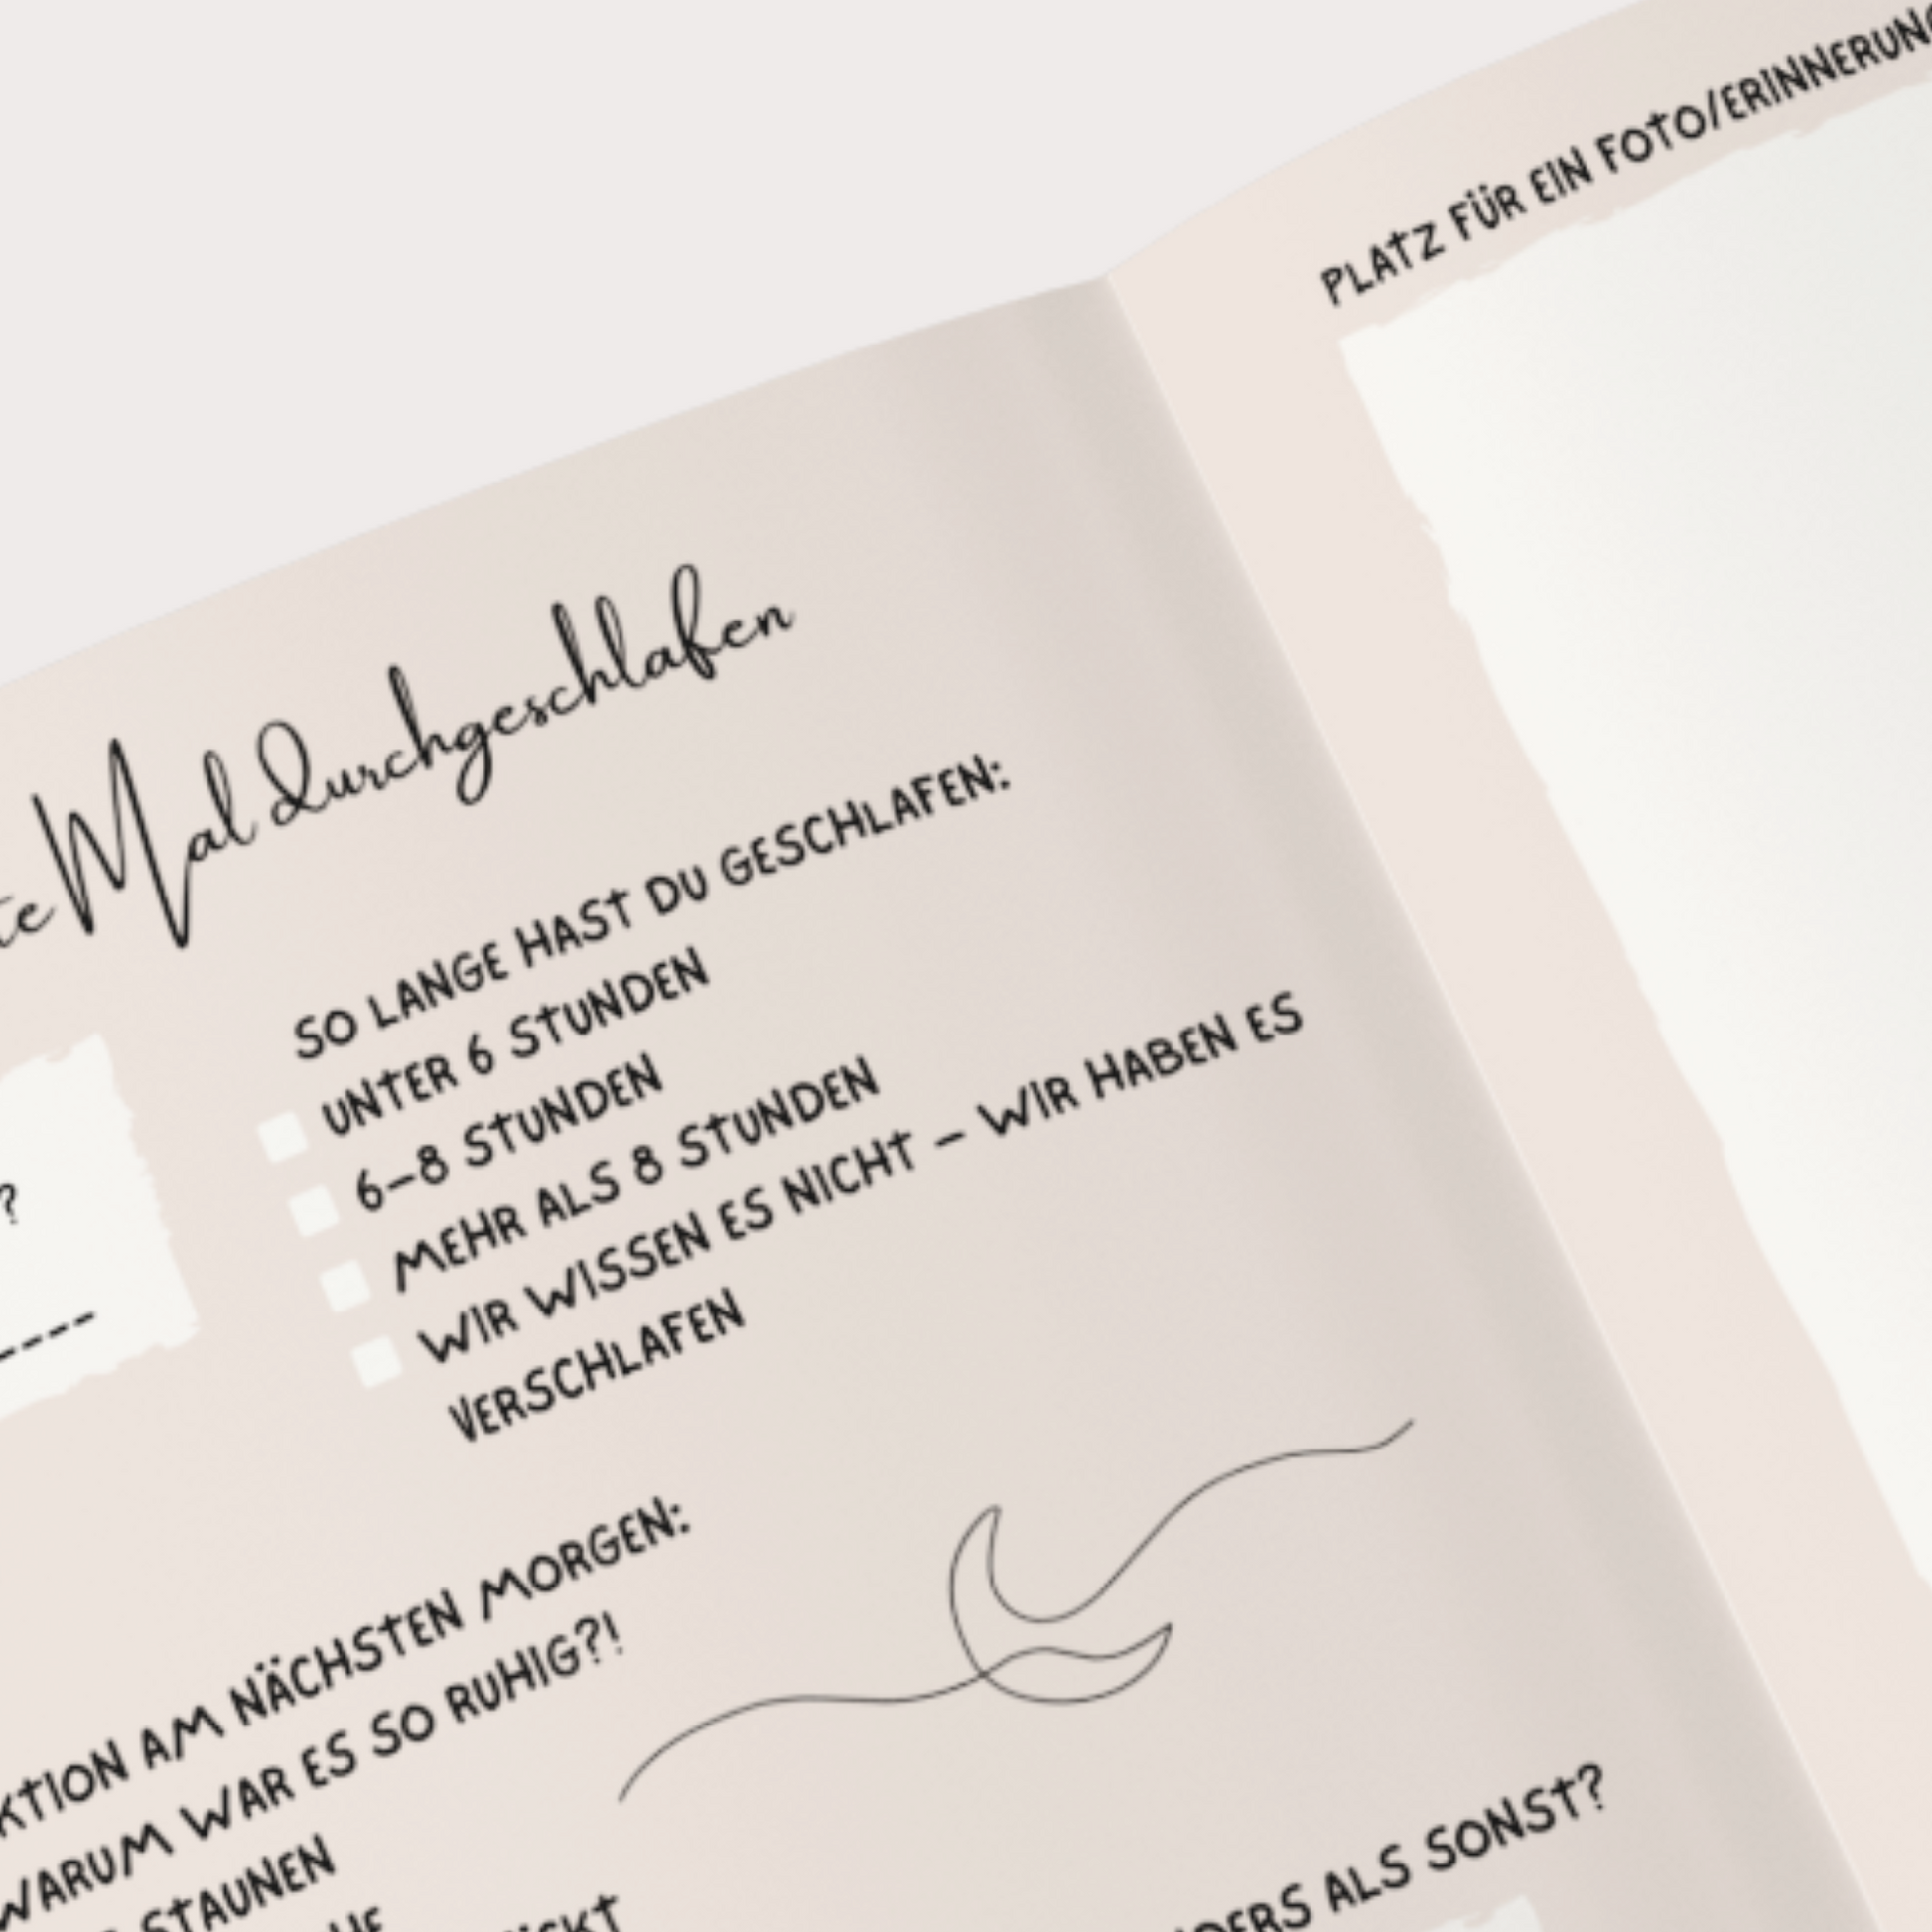 Mal durchgeschlafen
SO LANGE HAST DU GESCHLAFEN:
UNTER 6 STUNDEN
6–8 STUNDEN
MEHR ALS 8 STUNDEN
WIR WISSEN ES NICHT – WIR HABEN ES
VERSCHLAFEN
?
AM NÄCHSTEN MORGEN:
WARUM WAR ES SO RUHIG?!
STAUNEN
ALS SONST?
PLATZ FÜR EIN FOTO/ERINNERUNG